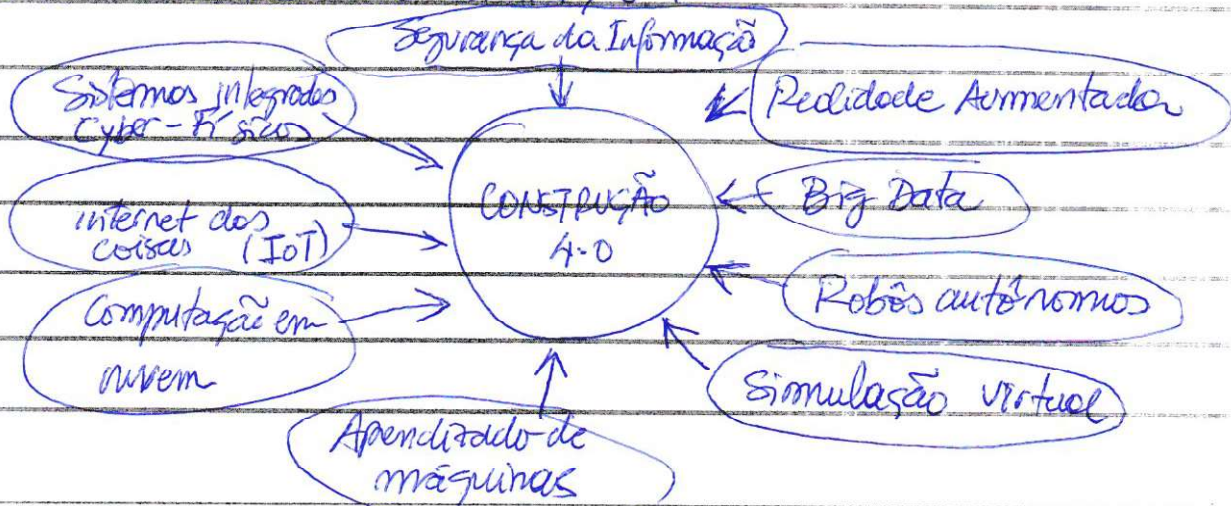 Segurança da Informação
Sistemas integrados
Cyber-Físicos
Realidade Aumentada
CONSTRUÇÃO
4.0
Big Data
internet das
coisas (IoT)
Robôs autônomos
Computação em
nuvem
Simulação virtual
Aprendizado de
máquinas